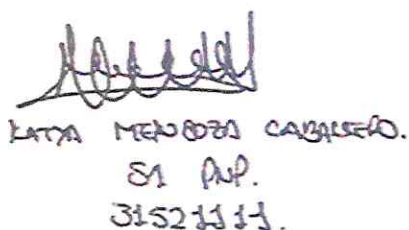 KATYA MENDOZA CABALLERO.
S1 PNP.
31521111.